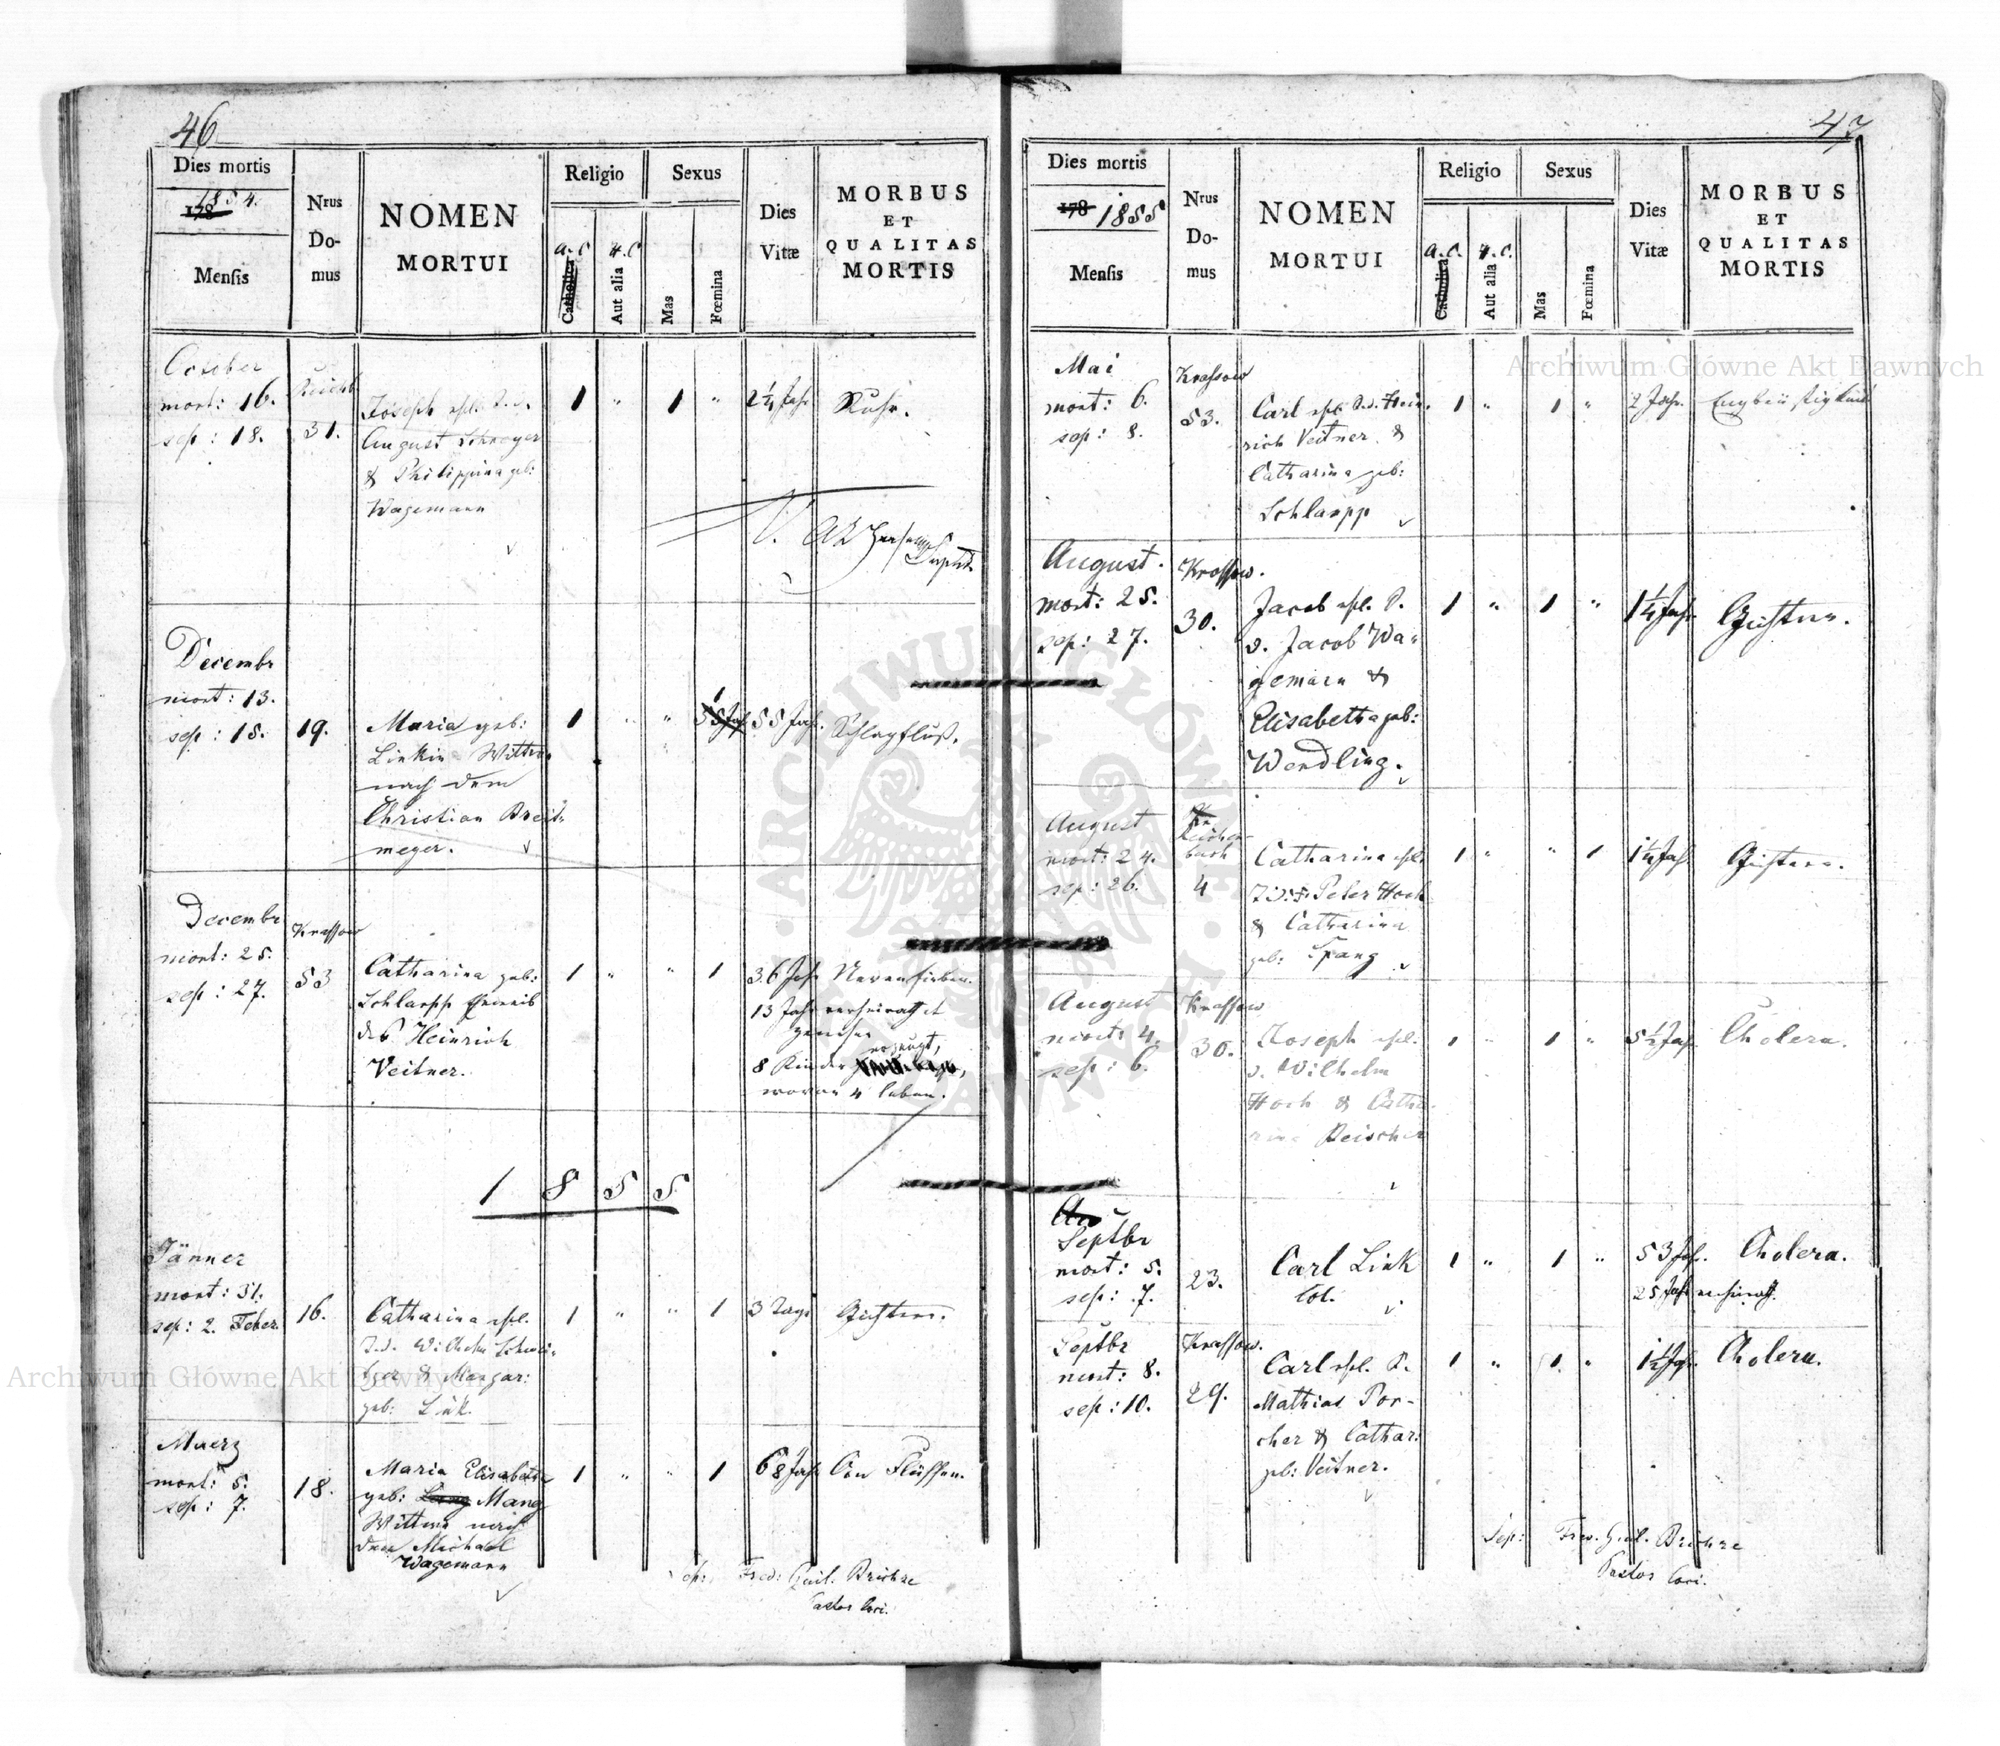 46
Dies mortis
1854.
178
Mensis
Nrus
Do-
mus
NOMEN
MORTUI
Religio
a.C
Catholica
H.C
Aut alia
Sexus
Mas
Fœmina
Dies
Vitæ
MORBUS
ET
QUALITAS
MORTIS
October
mort: 16.
sep: 18.
31.
Joseph
August Schreyer
& Philippina geb:
Wagemann
1 " 1 "
2¼ Jahr
Ruhr.
Decembr
mort: 13.
sep: 15.
19.
Maria geb:
Linkin Wittwe
nach dem
Christian Breit-
meyer.
1 " "
55 Jahr.
Schlagfluß.
Decembr
mort: 25.
sep: 27.
Krassow
53
Catharina geb:
Schlarpp
des Heinrich
Veitner.
1 " " 1
36 Jahr
Nervenfieber.
13 Jahr verheirathet
gewesen
erzeugt,
8 Kinder
wovon 4 leben.
1855
Jänner
mort: 31.
sep: 2. Feber.
16.
Catharina ehl.
T. d. Wilhelm
& Margar:
geb: Link.
1 " " 1
3 Tage
Gichtern.
Maerz
mort: 5.
sep: 7.
18.
Maria Elisabetha
geb: Mang
Wittwe nach
dem Michael
Wagemann
1 " " 1
68 Jahr
An Flüssen.
Fred: Guil.
Pastor loci.
47
Dies mortis
178 1855
Mensis
Nrus
Do-
mus
NOMEN
MORTUI
Religio
a.C.
Catholica
H.C.
Aut alia
Sexus
Mas
Fœmina
Dies
Vitæ
MORBUS
ET
QUALITAS
MORTIS
Mai
mort: 6.
sep: 8.
Krassow
53.
Carl ehl. S. d. Hein-
rich Veitner &
Catharina geb:
Schlarpp
1 " 1 "
2 Jahr.
Engbrüstigkeit
August.
mort: 25.
sep: 27.
Krassow.
30.
Jacob ehl. S.
d. Jacob Wa-
gemann &
Elisabetha geb:
Wendling.
1 " 1 "
1¼ Jahr.
Gichtern.
August
mort: 24.
sep: 26.
Reichen-
bach
4
Catharina ehl.
T. d. Peter Hoch
& Catharina
geb: Spang
1 " " 1
1¼ Jahr
Gichtern.
August
mort: 4.
sep: 6.
Krassow
30.
Joseph ehl.
d. Wilhelm
Hoch & Catha-
rina Reischer
1 " 1 "
5½ Jahr
Cholera.
Septbr
mort: 5.
sep: 7.
23.
Carl Link
Col.
1 " 1 "
53 Jahr.
Cholera.
25 Jahr verheirath.
Septbr
mort: 8.
sep: 10.
Krassow.
29.
Carl ehl. S.
Mathias Por-
cher & Cathar:
geb: Veitner.
1 " 1. "
1½ Jahr.
Cholera.
Sep: Fred. Guil.
Pastor loci.
Archiwum Główne Akt Dawnych
Archiwum Główne Akt Dawnych
ARCHIWUM GŁÓWNE AKT DAWNYCH